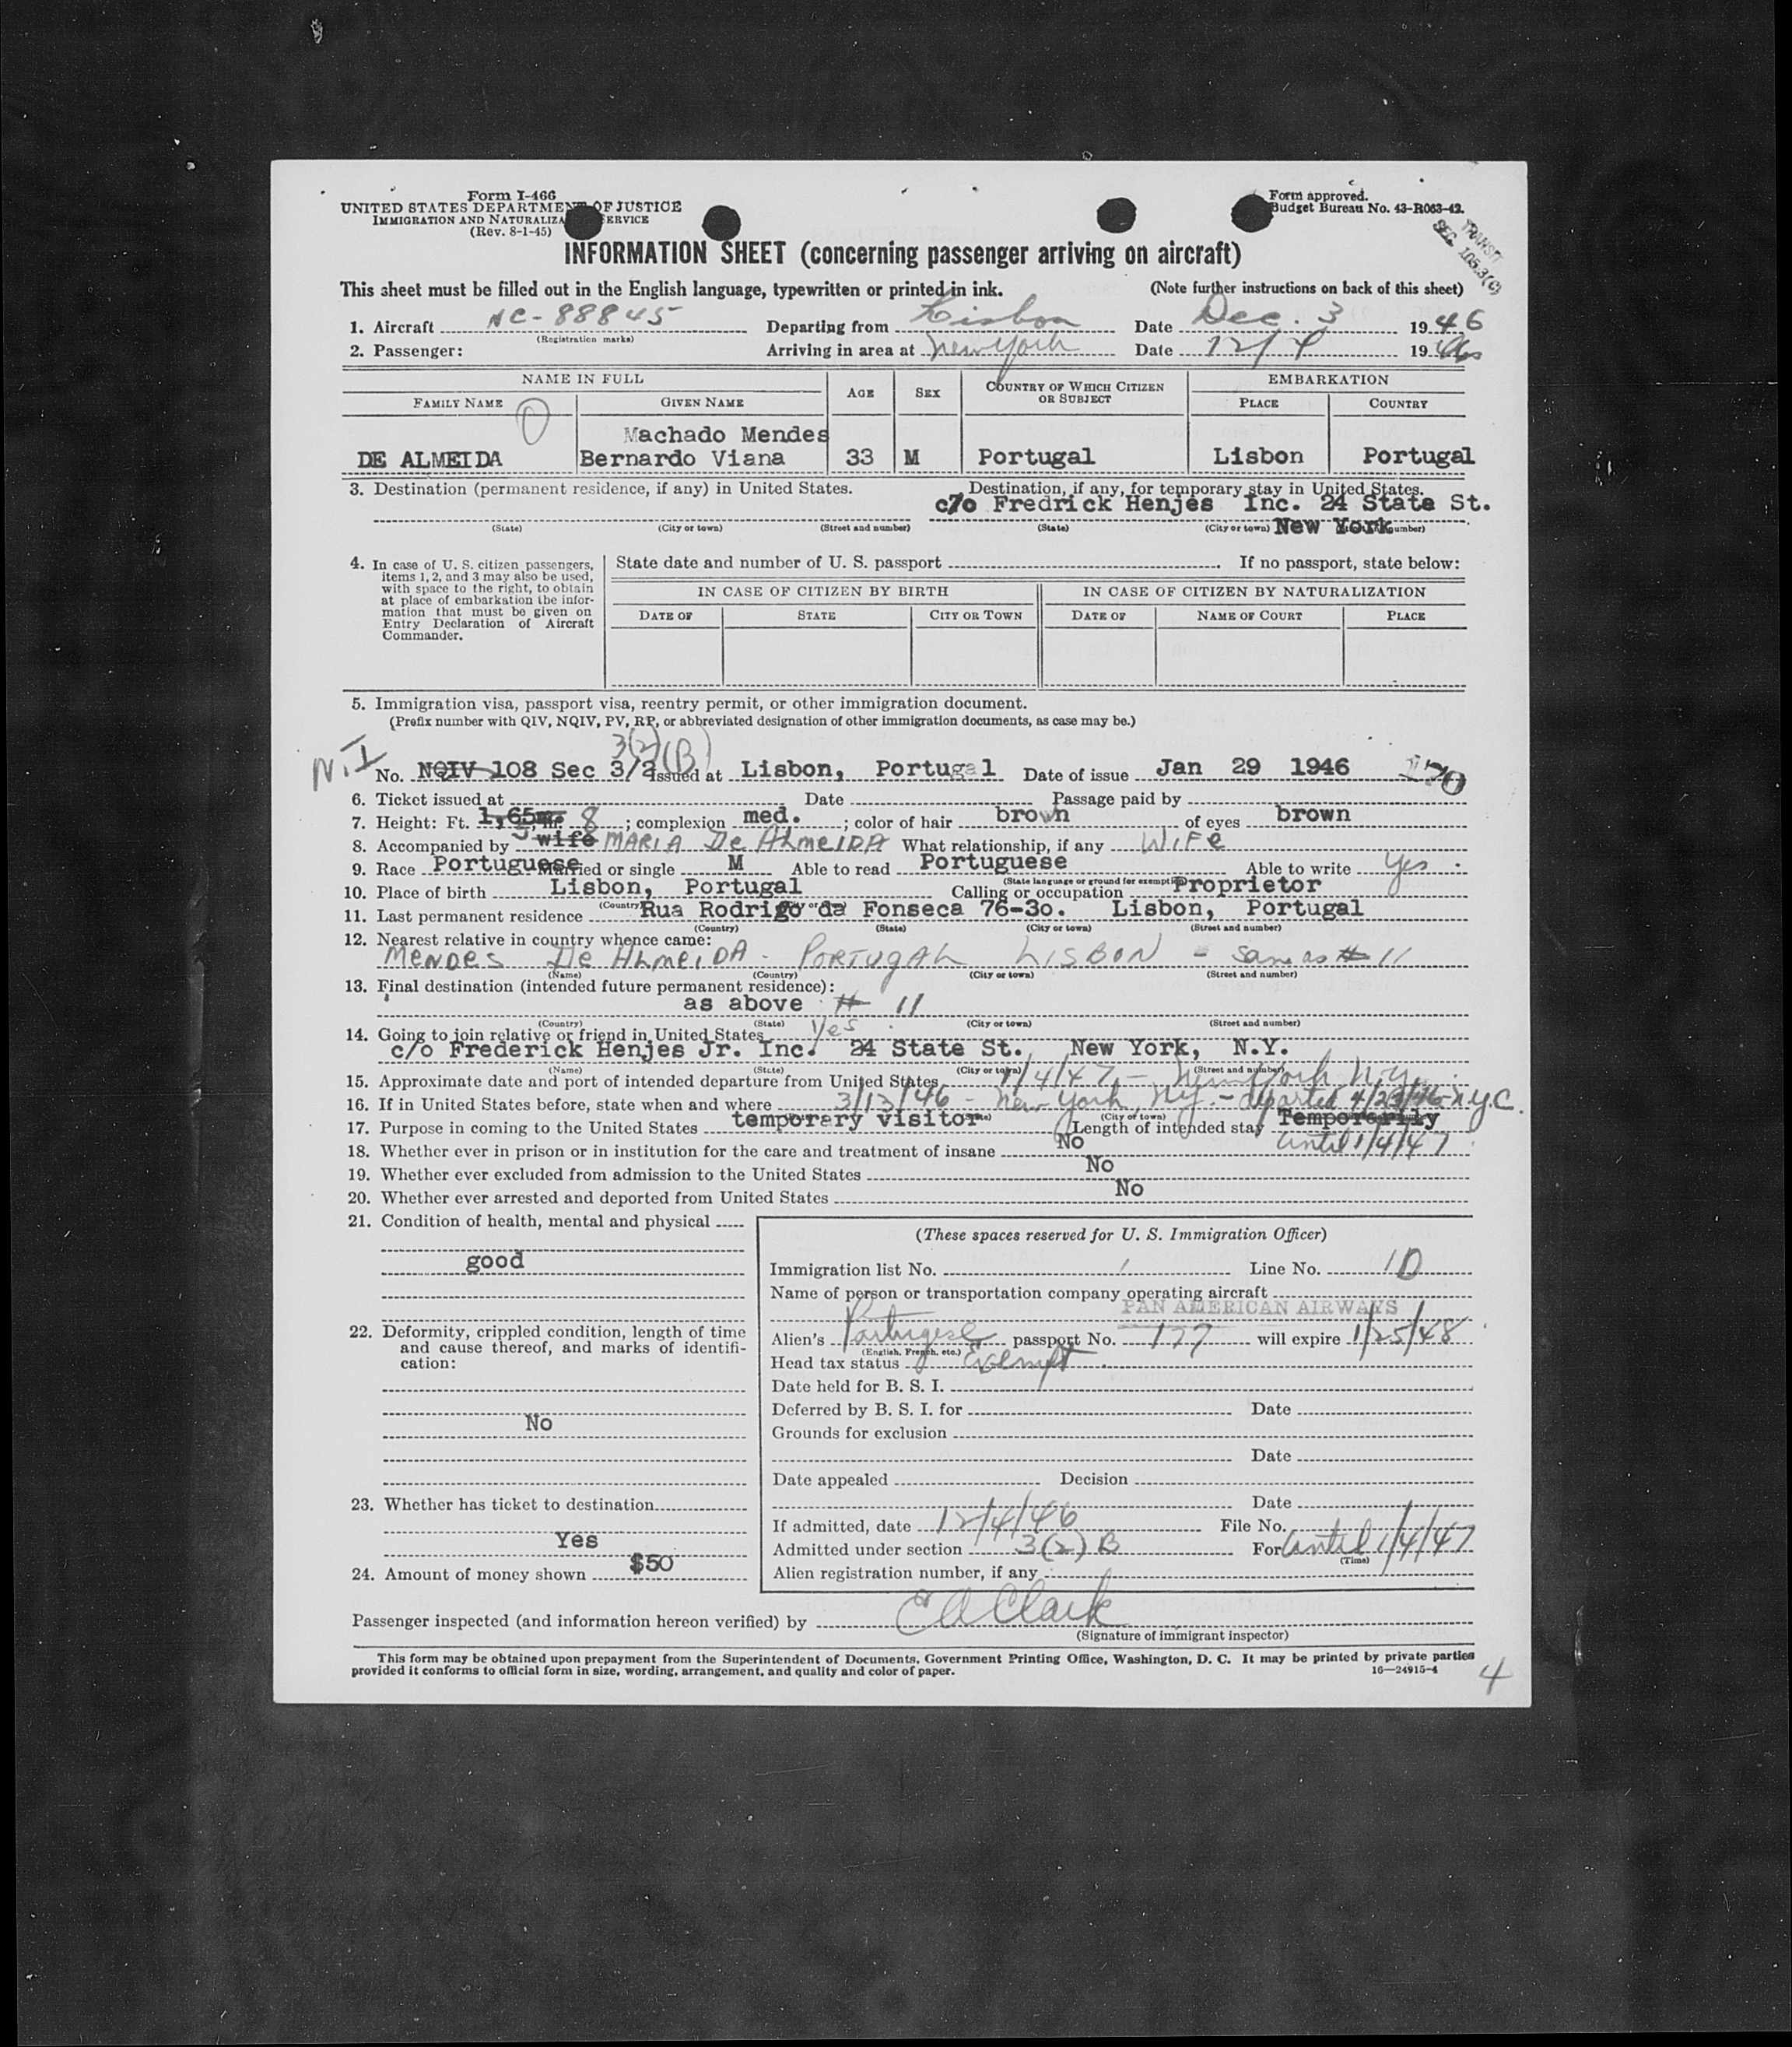 Form I-466
UNITED STATES DEPARTMENT OF JUSTICE
IMMIGRATION AND NATURALIZA SERVICE
(Rev. 8-1-45)
Form approved.
Budget Bureau No. 43-R063-42.
TRANSIT
SEC. 105.3(C)
INFORMATION SHEET (concerning passenger arriving on aircraft)
This sheet must be filled out in the English language, typewritten or printed in ink. (Note further instructions on back of this sheet)
1. Aircraft NC-88845 Departing from Lisbon Date Dec. 3 1946
(Registration marks)
2. Passenger: Arriving in area at New York Date 12/4 1946
NAME IN FULL AGE SEX COUNTRY OF WHICH CITIZEN OR SUBJECT EMBARKATION
FAMILY NAME GIVEN NAME PLACE COUNTRY
Machado Mendes
DE ALMEIDA Bernardo Viana 33 M Portugal Lisbon Portugal
3. Destination (permanent residence, if any) in United States. Destination, if any, for temporary stay in United States.
c/o Fredrick Henjes Inc. 24 State St.
(State) (City or town) (Street and number) (State) (City or town) New York
4. In case of U. S. citizen passengers, items 1, 2, and 3 may also be used, with space to the right, to obtain at place of embarkation the information that must be given on Entry Declaration of Aircraft Commander.
State date and number of U. S. passport If no passport, state below:
IN CASE OF CITIZEN BY BIRTH IN CASE OF CITIZEN BY NATURALIZATION
DATE OF STATE CITY OR TOWN DATE OF NAME OF COURT PLACE
5. Immigration visa, passport visa, reentry permit, or other immigration document.
(Prefix number with QIV, NQIV, PV, RP, or abbreviated designation of other immigration documents, as case may be.)
3(2)(B)
N.I No. NQIV 108 Sec 3/2 Issued at Lisbon, Portugal Date of issue Jan 29 1946
6. Ticket issued at Date Passage paid by
7. Height: Ft. 1,65m. 5, in. 8; complexion med.; color of hair brown of eyes brown
8. Accompanied by wife MARIA De ALMEIDA What relationship, if any WIFE
9. Race Portuguese Married or single M Able to read Portuguese Able to write yes
(State language or ground for exemption)
10. Place of birth Lisbon, Portugal Calling or occupation Proprietor
(Country) (City or town)
11. Last permanent residence Rua Rodrigo da Fonseca 76-3o. Lisbon, Portugal
(Country) (State) (City or town) (Street and number)
12. Nearest relative in country whence came:
MENDES De ALMEIDA - PORTUGAL LISBON - Same as # 11
(Name) (Country) (City or town) (Street and number)
13. Final destination (intended future permanent residence):
as above # 11
(Country) (State) (City or town) (Street and number)
14. Going to join relative or friend in United States Yes
c/o Frederick Henjes Jr. Inc. 24 State St., New York, N.Y.
(Name) (State) (City or town) (Street and number)
15. Approximate date and port of intended departure from United States 1/4/47 - New York N.Y.
16. If in United States before, state when and where 3/13/46 - New York, N.Y. - departed 4/23/46 - N.Y.C.
(City or town)
17. Purpose in coming to the United States temporary visitor Length of intended stay Temporarily
until 1/4/47
18. Whether ever in prison or in institution for the care and treatment of insane No
19. Whether ever excluded from admission to the United States No
20. Whether ever arrested and deported from United States No
21. Condition of health, mental and physical
good
22. Deformity, crippled condition, length of time and cause thereof, and marks of identification:
No
23. Whether has ticket to destination
Yes
24. Amount of money shown $50
(These spaces reserved for U. S. Immigration Officer)
Immigration list No. 1 Line No. 10
Name of person or transportation company operating aircraft
PAN AMERICAN AIRWAYS
Alien's Portugese passport No. 177 will expire 1/25/48
(English, French, etc.)
Head tax status Exempt
Date held for B. S. I.
Deferred by B. S. I. for Date
Grounds for exclusion
Date
Date appealed Decision
Date
If admitted, date 12/4/46 File No.
Admitted under section 3(2)B For until 1/4/47
(Time)
Alien registration number, if any
Passenger inspected (and information hereon verified) by E A Clark
(Signature of immigrant inspector)
This form may be obtained upon prepayment from the Superintendent of Documents, Government Printing Office, Washington, D. C. It may be printed by private parties
provided it conforms to official form in size, wording, arrangement, and quality and color of paper. 16—24915-4
4